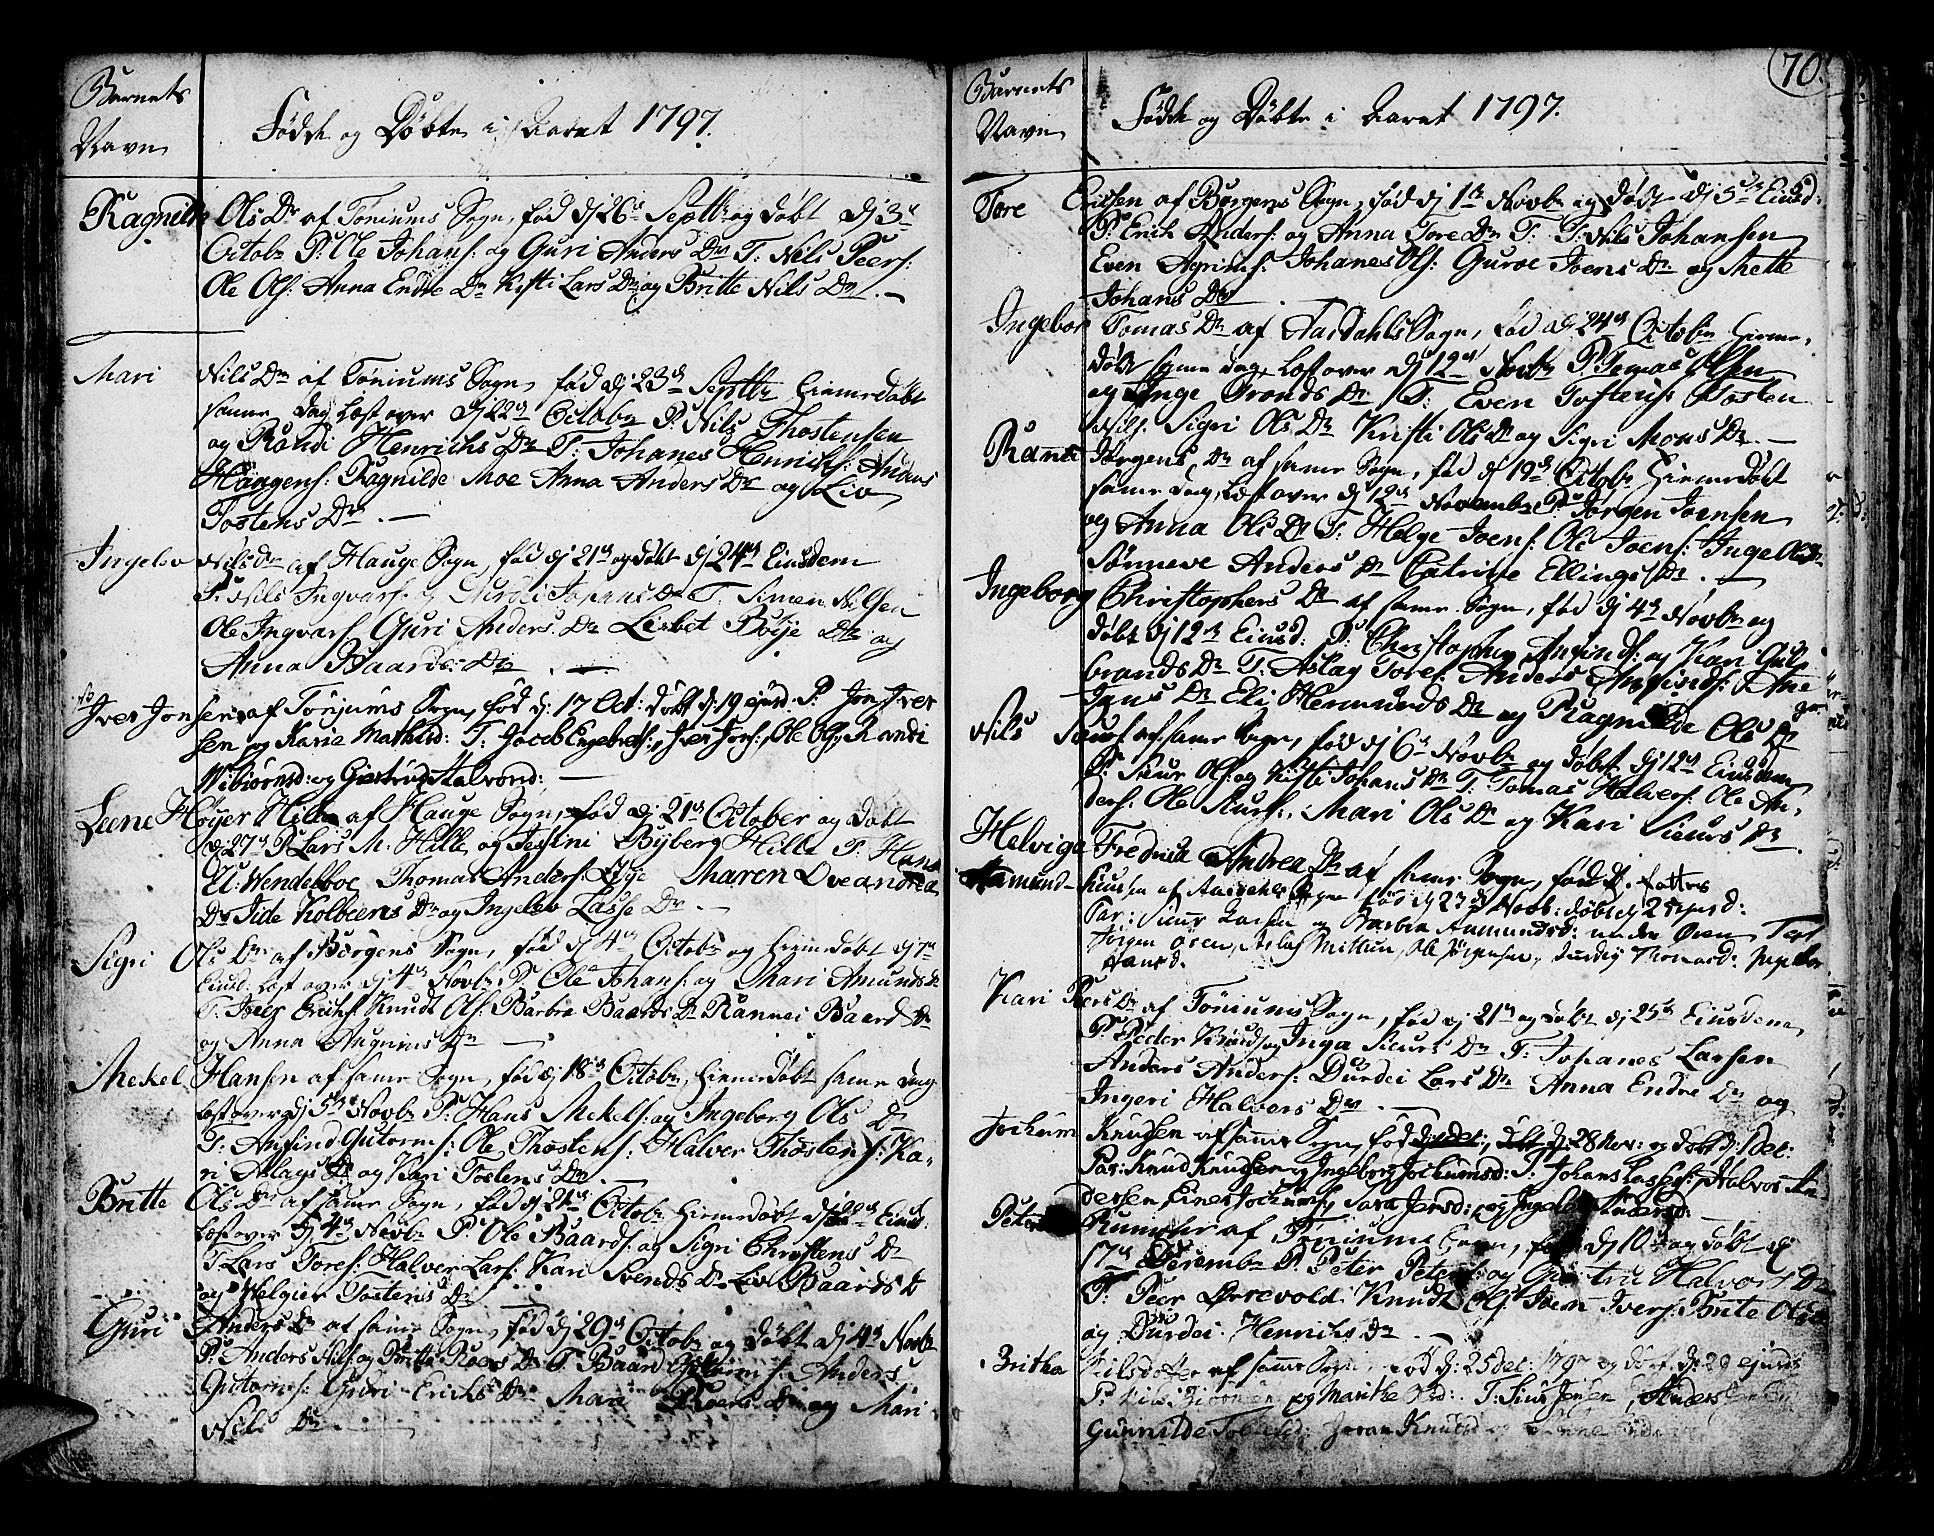 Barnets
Navn
Fødde og Døbte i Aaret 1797.
Ragnilde Ols Dr af Tøniums Sogn, fød dj 26s Septbr og døbt dj 3s
Octobr P: Ole Johans: og Guri Anders Dr T: Nils Peers:
Ole Ols: Anna Endre Dr Kisti Lars Dr og Britte Nils Dr. —
Mari Nils Dr af Tøniums Sogn, fød dj 23de Septbr hiemedøbt
samme Dag læst over dj 22de Octobr P: Nils Thostensen
og Randi Henrichs Dr T: Johanes Henrichs: Anders
Haagens: Ragnilde Moe Anna Anders Dr og Liv
Tostens Dr. —
Ingelev Nils Dr af Hauge Sogn, fød dj 21de og døbt dj 24de Eiusdem
P: Nils Ingvars: og Johans Dr T: Simen Nilsen
Ole Ingvars: Guri Anders Dr Lisbet Boye Dr og
Anna Baards Dr. —
Iver Jonsen af Tønjums Sogn, fød d: 17 Oct: døbt d: 19 ejusd: P: Jon Iver
sen og Karie Mathisd: T: Jacob Engebrets:, Iver Jons:, Ole Ols: Randi
Wibiørnsd: og Giertrug Halvorsd: —
Leene Høyer Hille af Hauge Sogn, fød dj 21de October og døbt
dj 27de P: Lars M: Hille og Jessini Byberg Hille T: Hans
U: Wendelboe Thomas Anders: Øye Maren Oveandrea
Dr Side Kolbeens Dr og Ingelev Lasse Dr. —
Sigri Ols Dr af Borgens Sogn, fød dj 4de Octobr og hiemedøbt dj 7de
Eiusd: læst over dj 4de Novbr P: Ole Johans: og Mari Amunds Dr
T: Iver Erichs: Knudt Ols: Barbra Baards Dr Rannei Baards Dr
og Anna Augrims Dr —
Mekel Hansen af samme Sogn, fød dj 18de Octobr, hiemedøbt samme dag
læst over dj 5te Novbr P: Hans Mekels: og Ingeborg Ols Dr
T: Anfind Gutorms: Ole Thostens: Halver Thostens: Ka-
ri Aslags Dr og Kari Tostens Dr. —
Britte Ols Dr af samme Sogn, fød dj 21de Octobr hiemedøbt dj 22de Eiusd:
læst over dj 4de Novbr P: Ole Baards: og Sigri Christens Dr
T: Lars Tores: Halver Lars: Kari Svends Dr Liv Baards Dr
og Helgier Tostens Dr
Guri Anders Dr af samme Sogn, fød dj 29de Octobr og døbt dj 4de Novbr
P: Anders Nils: og Britte Roers Dr T: Baard Gutorms: Anders
Gutorms: Guri Erichs Dr Mari Roers Dr og Mari
Nils Dr —
70.
Barnets
Navn
Fødde og Døbte i Aaret 1797.
Tore Erichsen af Borgens Sogn, fød dj 1te Novbr og døbt dj 5te Eiusd:
P: Erich Anders: og Anna Tore Dr T: Nils Johansen
Even Agrims: Johanes Ols: Guroe Joens Dr og Mette
Johans Dr
Ingebor Tomas Dr af Aardahls Sogn, fød dj 24de Octobr hieme-
døbt samme dag, læst over dj 12te Novbr P: Tomas Olsen
og Inge Tronds Dr T: Even Tostens: Tosten
Nils: Sigri Ols Dr Kristi Ols Dr og Sigri Mons Dr. —
Ranni Jørgens Dr af samme Sogn, fød dj 19de Octobr hiemedøbt
samme dag, læst over dj 12te Novembr P: Jørgen Joensen
og Anna Ols Dr T: Helge Joens: Ole Joens: Inge Ols Dr
Sønneve Anders Dr Catrine Ellings Dr. —
Ingeborg Christophers Dr af samme Sogn, fød dj 4de Novbr og
døbt dj 12te Eiusd: P: Christopher Anfinds: og Kari Gulp
brands Dr T: Aslag Tores: Anders Anfinds: Ane
Jens Dr Eli Hermunds Dr og Ragnilde Ols Dr
Nils Siurs: af samme Sogn, fød dj 6te Novbr og døbt dj 12te Eiusdem
P: Siur Ols: og Kisti Johans Dr T: Tomas Halvers: Ole An-
ders: Ole Siurs: Mari Ols Dr og Kari Siurs Dr.
Helviga Fredrica Andrea Dr af samme Sogn, fød
Aamund Siursen af Aardahls Sogn fød dj 23de Novb: døbt dj 25 ejusd:
Par: Siur Larsen og Barbra Aamundsd: nedre Øren Test
Jørgen Øren, Aslaf Mittun, Ole Jørgensen, Thomasd:
Hansd.
Kari Peers Dr af Tøniums Sogn, fød dj 21de og døbt dj 25de Eiusdem
P: Peder Knuds: og Inga Siurs Dr T: Johanes Larsen
Anders Anders: Durdei Lars Dr Anna Endre Dr og
Ingeri Halvers Dr. —
Jochum Knudsen af samme Sogn, fød d: 28 Nov: og døbt d: 1 Dec:
Par: Knud Knudsen og Ingeborg Jochumsd: T: Johans Lasses:, Halvor An-
dersen, Einer Jochums:, Sara Jensd: og Ingebor Andersd:
Peter Rumohr af Tøniums Sogn, fød dj 10de og døbt dj
17de Decembr P: Peter Peters: og Giertru Halvors Dr
T: Peer Ørrevold Knudt Ols: Joen Ivers: Brite Ols Dr
og Durdei Henrichs Dr. —
Britha Nilsdotter af samme Sogn fød d: 25 Dec: 1797 og døbt d: 29 ejusd:
P: Nils og Marithe Olsd: T: Siur Jensen, Anders
Gunnilde Joran Knudsd og